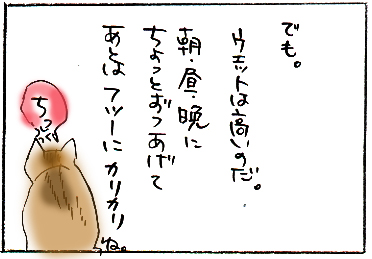 でも。
ウェットは高いのだ。
朝・昼・晩に
ちょっとずつあげて
あとはフツーにカリカリね。
ちっ